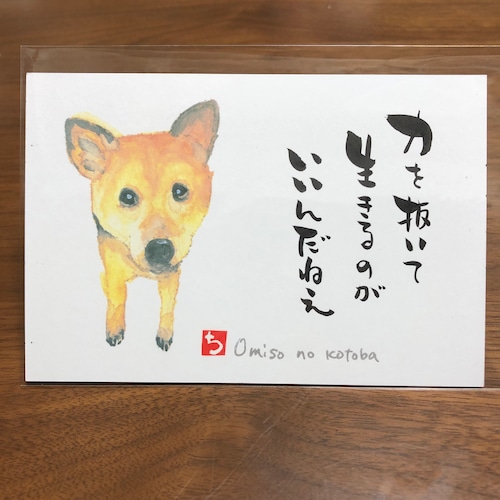 力を抜いて
生きるのが
いいんだねえ
ち Omiso no kotoba